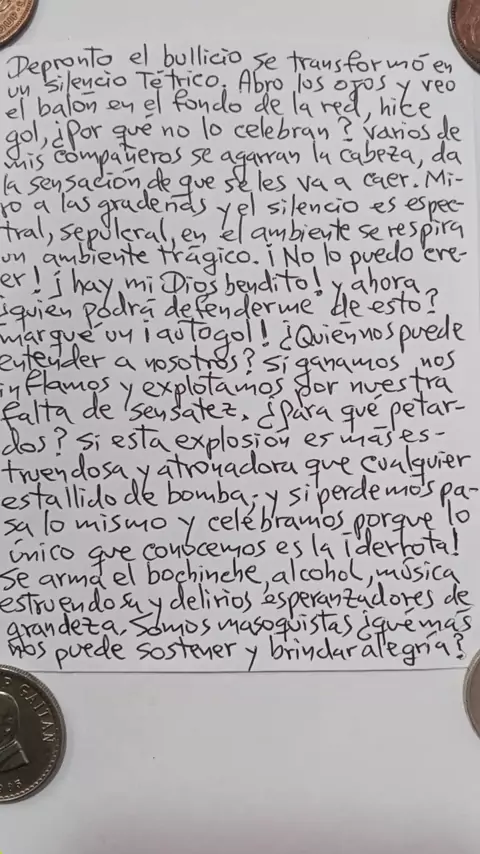 Depronto el bullicio se transformó en
un silencio Tétrico. Abro los ojos y veo
el balón en el fondo de la red, hice
gol, ¿Por qué no lo celebran? varios de
mis compañeros se agarran la cabeza, da
la sensación de que se les va a caer. Mi-
ro a las graderias y el silencio es espec-
tral, sepulcral, en el ambiente se respira
un ambiente trágico. ¡No lo puedo cre-
er! ¡hay mi Dios bendito! y ahora
¿quien podrá defenderme de esto?
marqué un ¡autogol! ¿Quién nos puede
entender a nosotros? si ganamos nos
inflamos y explotamos por nuestra
falta de sensatez. ¿Para qué petar-
dos? si esta explosión es más es-
truendosa y atronadora que cualquier
estallido de bomba; y si perdemos pa-
sa lo mismo y celebramos porque lo
único que conocemos es la ¡derrota!
Se arma el bochinche, alcohol, música
estruendosa y delirios esperanzadores de
grandeza. Somos masoquistas ¿qué más
nos puede sostener y brindar alegría?
GAITAN